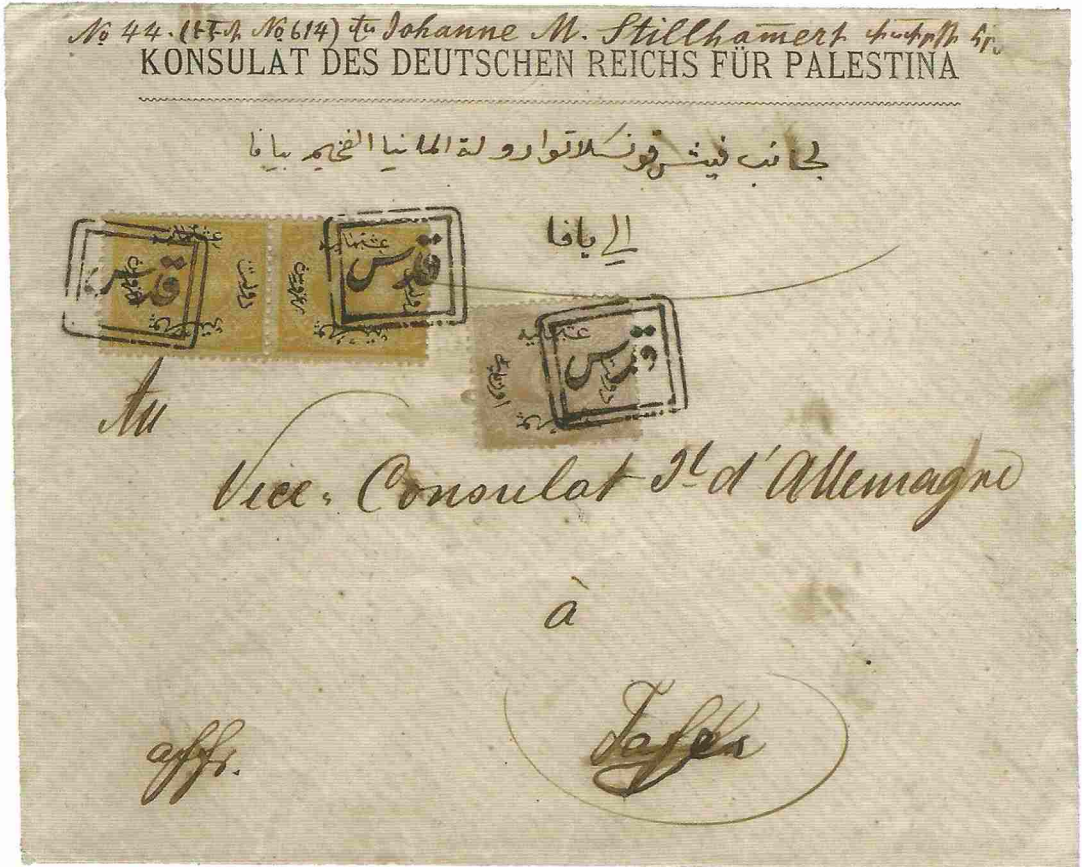 No 44. No 614) Johanne M. Stillhamert
KONSULAT DES DEUTSCHEN REICHS FÜR PALESTINA
لجانب فيش قونسلاتو دولة المانيا الفخيم بيافا
الى يافا
قدس
قدس
قدس
Au
Vice-Consulat Il d'Allemagne
à
Jaffa
affr.